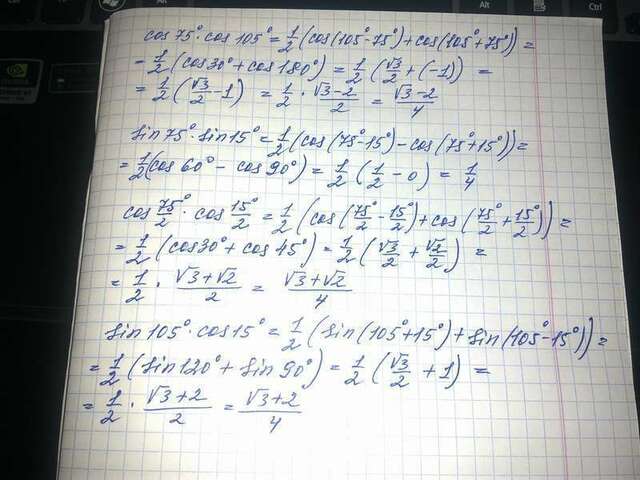 cos 75° · cos 105° = 1/2 (cos(105° - 75°) + cos(105° + 75°)) =
= 1/2 (cos 30° + cos 180°) = 1/2 (√3/2 + (-1)) =
= 1/2 (√3/2 - 1) = 1/2 · (√3 - 2)/2 = (√3 - 2)/4
sin 75° · sin 15° = 1/2 (cos(75° - 15°) - cos(75° + 15°)) =
= 1/2 (cos 60° - cos 90°) = 1/2 (1/2 - 0) = 1/4
cos 75°/2 · cos 15°/2 = 1/2 (cos(75°/2 - 15°/2) + cos(75°/2 + 15°/2)) =
= 1/2 (cos 30° + cos 45°) = 1/2 (√3/2 + √2/2) =
= 1/2 · (√3 + √2)/2 = (√3 + √2)/4
sin 105° · cos 15° = 1/2 (sin(105° + 15°) + sin(105° - 15°)) =
= 1/2 (sin 120° + sin 90°) = 1/2 (√3/2 + 1) =
= 1/2 · (√3 + 2)/2 = (√3 + 2)/4
NVIDIA
Alt
Ctrl